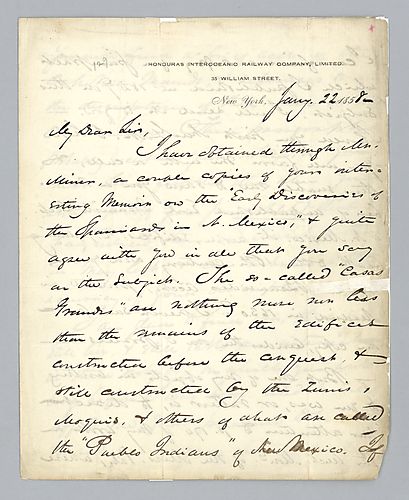 HONDURAS INTEROCEANIC RAILWAY COMPANY, LIMITED.
35 WILLIAM STREET.
New York, Jany. 22 1858
My Dear Sir,
I have obtained through Mr.
a couple copies of your inter-
esting Memoir on the "Early Discoveries of
the Spaniards in N. Mexico," & quite
agree with you in all that you say
on the subject. The so-called "Casas
Grandes" are nothing more nor less
than the remains of the edifices
constructed before the conquest, &
still constructed by the Zunis,
Moquis, & others of what are called
the "Pueblo Indians" of New Mexico. If